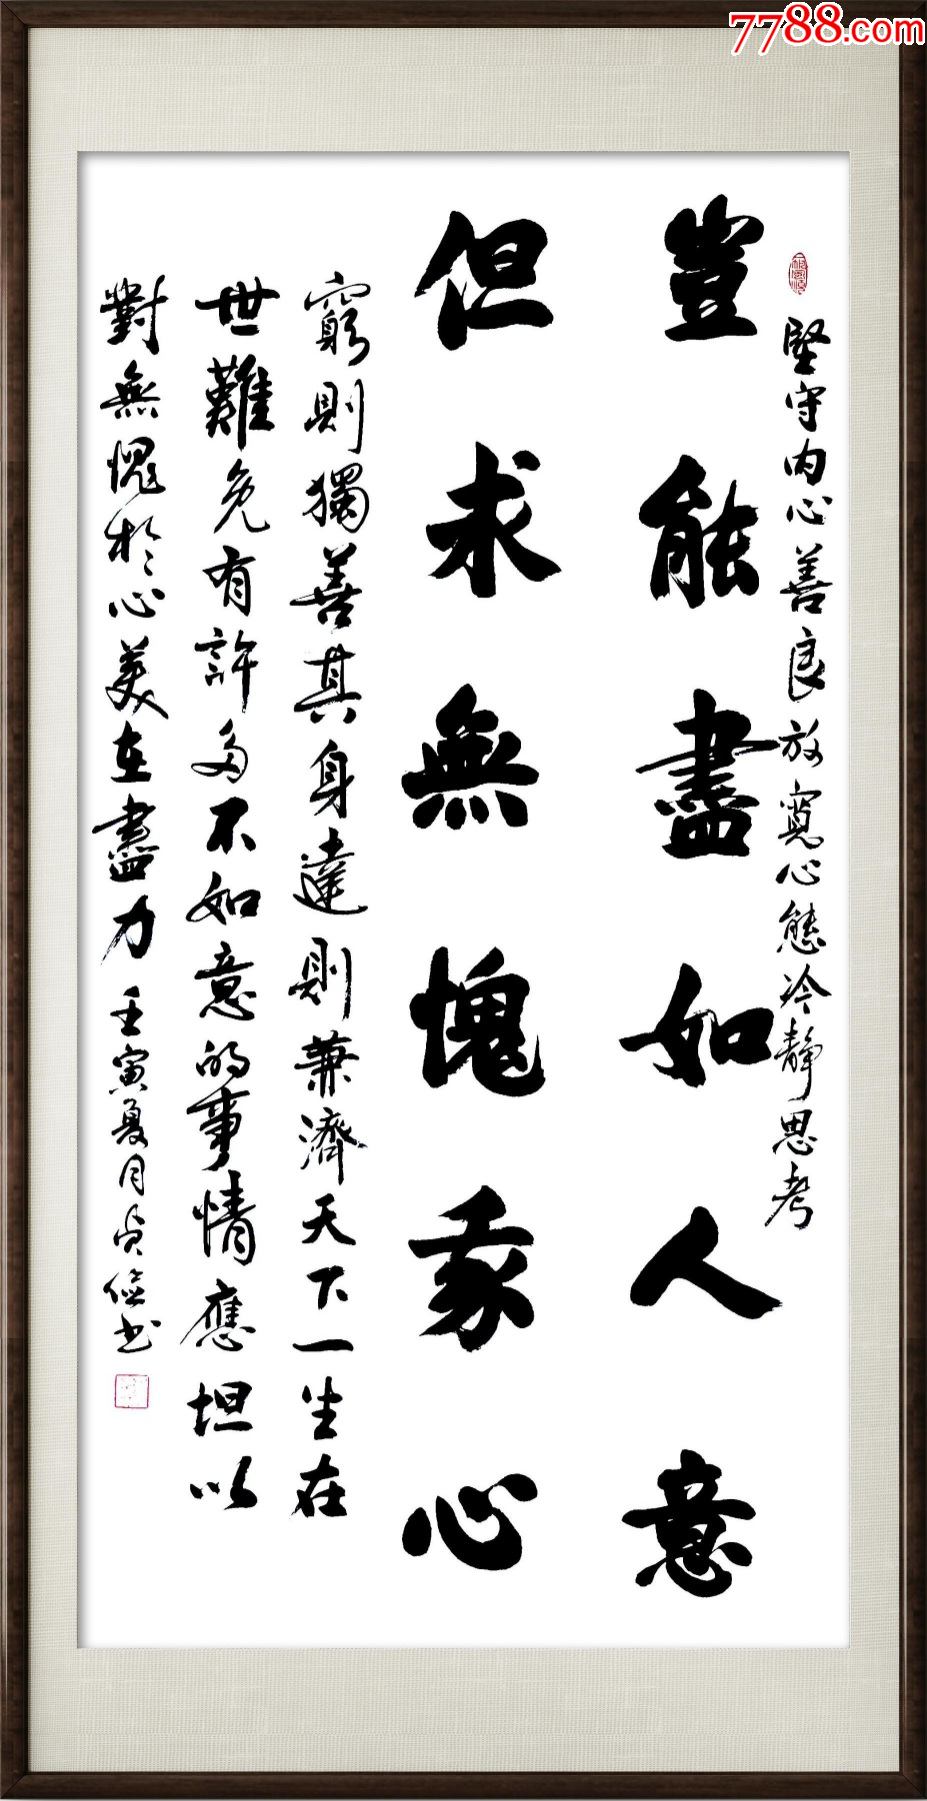 7788.com
堅守内心善良放寬心態冷靜思考
豈能盡如人意
但求無愧我心
窮則獨善其身達則兼濟天下一生在
世難免有許多不如意的事情應坦以
對無愧於心美在盡力
壬寅夏月貞儉书